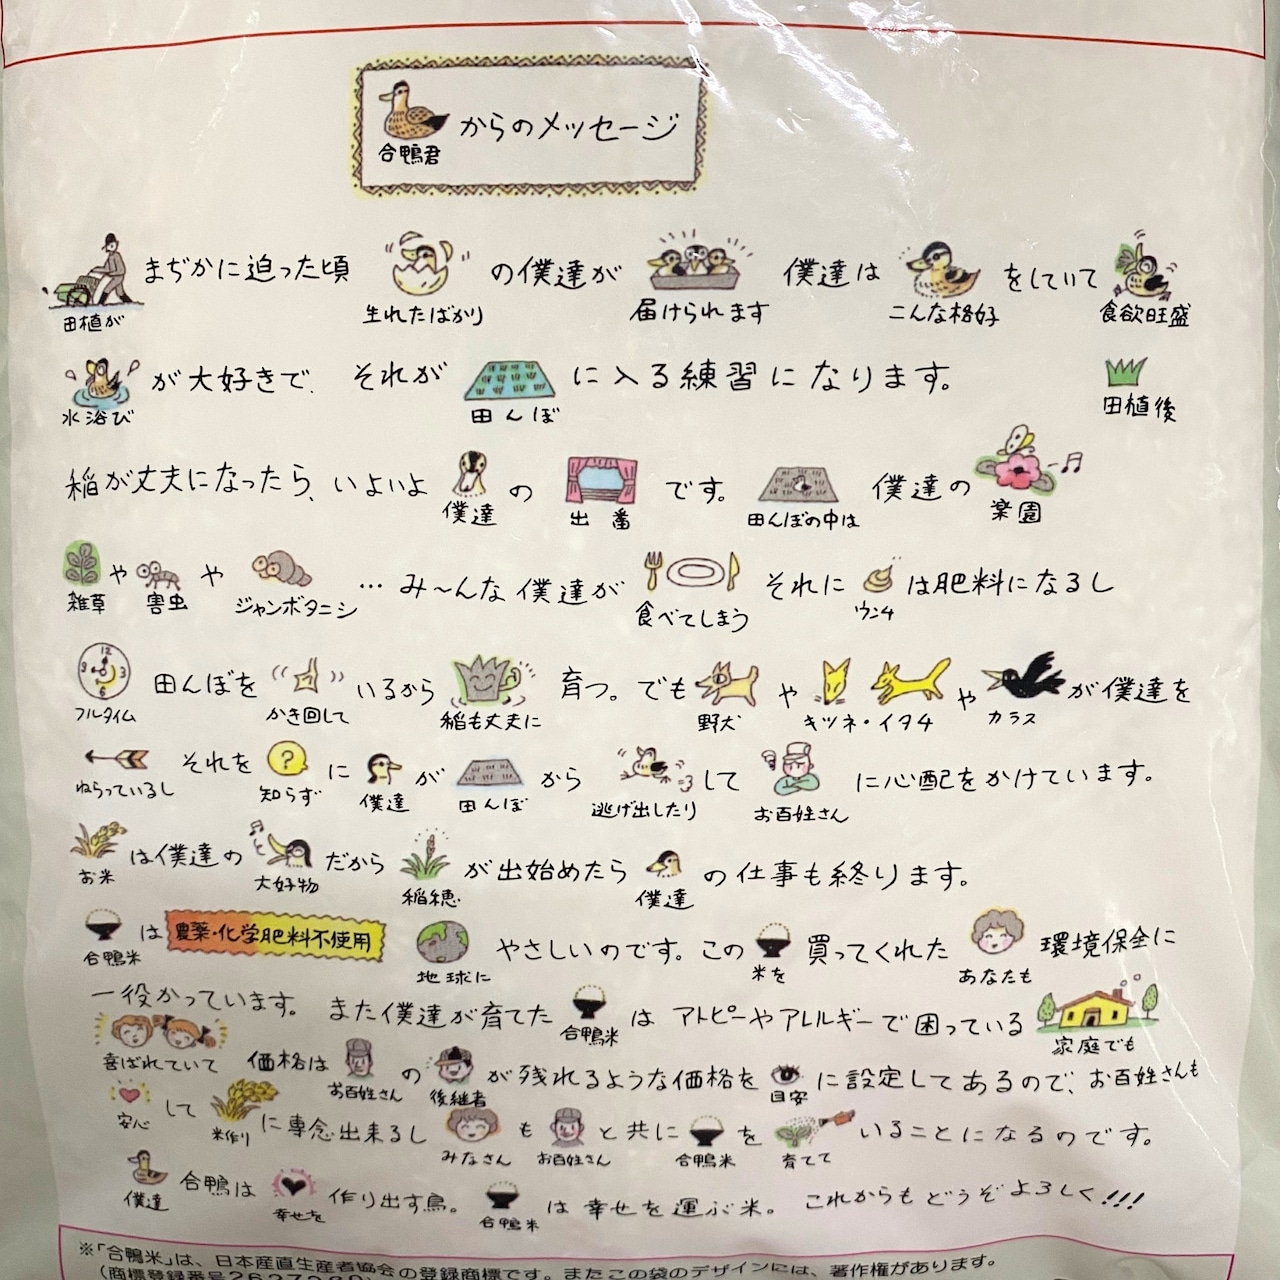 合鴨君からのメッセージ
田植がまぢかに迫った頃 生れたばかりの僕達が届けられます 僕達はこんな格好をしていて食欲旺盛
水浴びが大好きで、それが田んぼに入る練習になります。 田植後
稲が丈夫になったら、いよいよ僕達の出番です。田んぼの中は僕達の楽園
雑草や害虫やジャンボタニシ…み〜んな僕達が食べてしまう それにウンチは肥料になるし
フルタイム田んぼをかき回しているから稲も丈夫に育つ。でも野犬やキツネ・イタチやカラスが僕達を
ねらっているし それを知らずに僕達が田んぼから逃げ出したりしてお百姓さんに心配をかけています。
お米は僕達の大好物だから稲穂が出始めたら僕達の仕事も終ります。
合鴨米は農薬・化学肥料不使用 地球にやさしいのです。この米を買ってくれたあなたも環境保全に
一役かっています。また僕達が育てた合鴨米はアトピーやアレルギーで困っている家庭でも
喜ばれていて 価格はお百姓さんの後継者が残れるような価格を目安に設定してあるので、お百姓さんも
安心して米作りに専念出来るしみなさんもお百姓さんと共に合鴨米を育てていることになるのです。
僕達合鴨は幸せを作り出す鳥。合鴨米は幸せを運ぶ米。これからもどうぞよろしく!!!
※「合鴨米」は、日本産直生産者協会の登録商標です。またこの袋のデザインには、著作権があります。
(商標登録番号